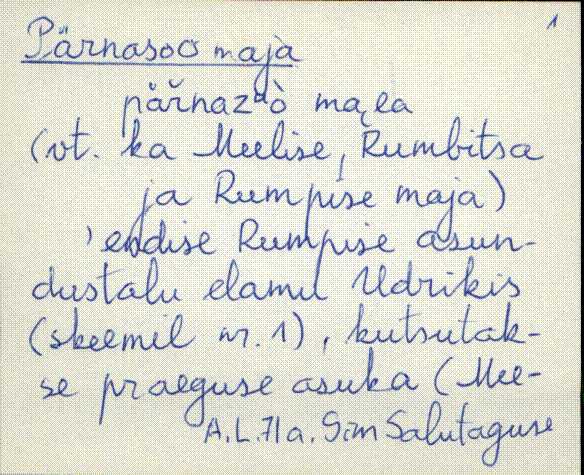 1
Pärnasoo maja
pärnazᵒò maɩ̯a
(vt. ka Meelise, Rumbitsa
ja Rumpise maja)
' endise Rumpise asun-
dustalu elamu Udrikis
(skeemil nr. 1), kutsutak-
se praeguse asuka (Mee-
A.L. 71a. Sim Salutaguse